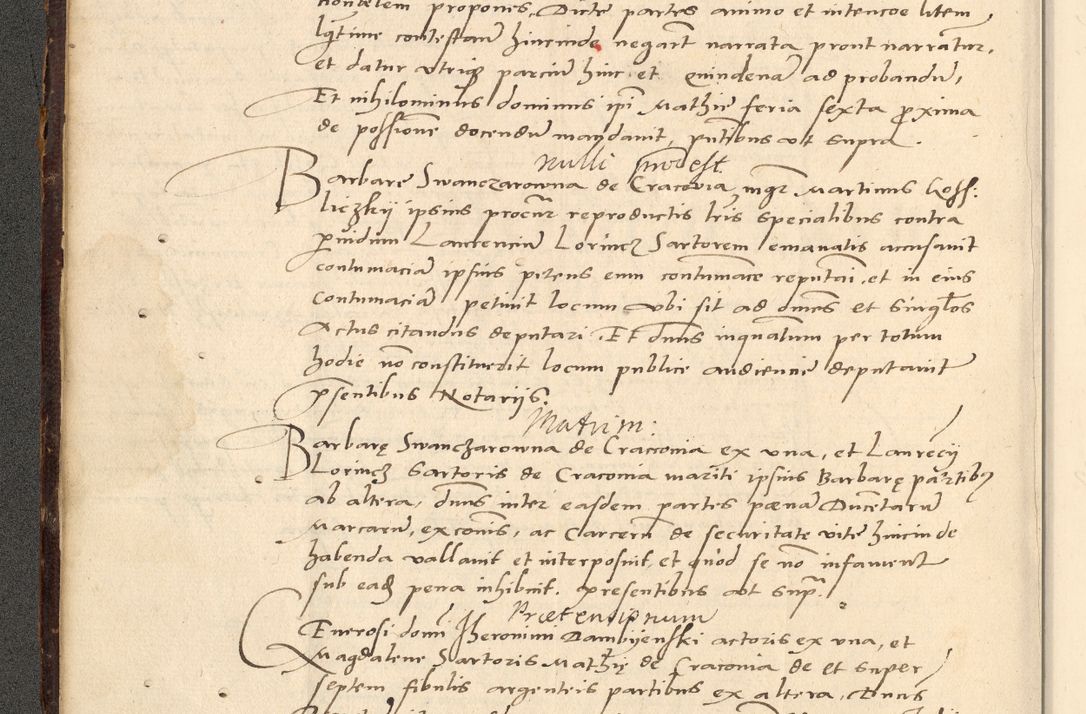 proponens, Dicte partes animo et intencoe litem
lgtime contestan hincinde negant narrata pront narratur,
et datur utriq parciu hinc et quindena ad probandu,
Et nihilominus dominus ipi Mathie feria sexta proxima
de possione docendu mandavit, pntibus ut supra.
Barbare Swanczarowna de Cracovia, mgr Martinus Koss:
liczkij ipsius procur reproductis lris specialibus contra
pvidum Laurenciu Lorincz Sartorem emanatis accusavit
contumacia ipsius petens eum contumace reputai, et in eius
contumacia petivit locum ubi sit ad omes et singlos
Actus citandus deputari. Et dnus inquatum per totum
hodie no constituerit locum publice audiencie deputavit
psentibus Notarijs.
Matrim:
Barbarę Swanczarowna de Cracovia ex una, et Laurecij
Lorincz Sartoris de Cracovia mariti ipsius Barbarę partibus
ab altera, dnus inter easdem partes pœna Ducetaru
Marcaru, excois, ac Carceru de securitate vite hincinde
habenda vallavit et interposuit, et quod se no infament
sub ead pena inhibuit. presentibus ut supr.
Prætendiorum
Generosi domi Iheronimi Dambijenski actoris ex una, et
Magdalene Sartoris Mathię de Cracovia de et super
septem fibulis argenteis partibus ex altera, Dnus